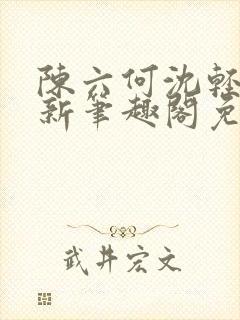 陳六何沈輕
新筆趣閣免
武井宏文